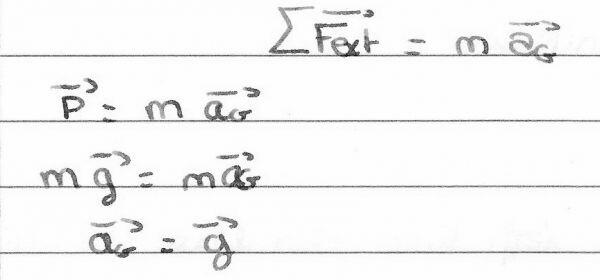 ∑F⃗ext = m a⃗G
P⃗ = m a⃗G
m g⃗ = m a⃗G
a⃗G = g⃗